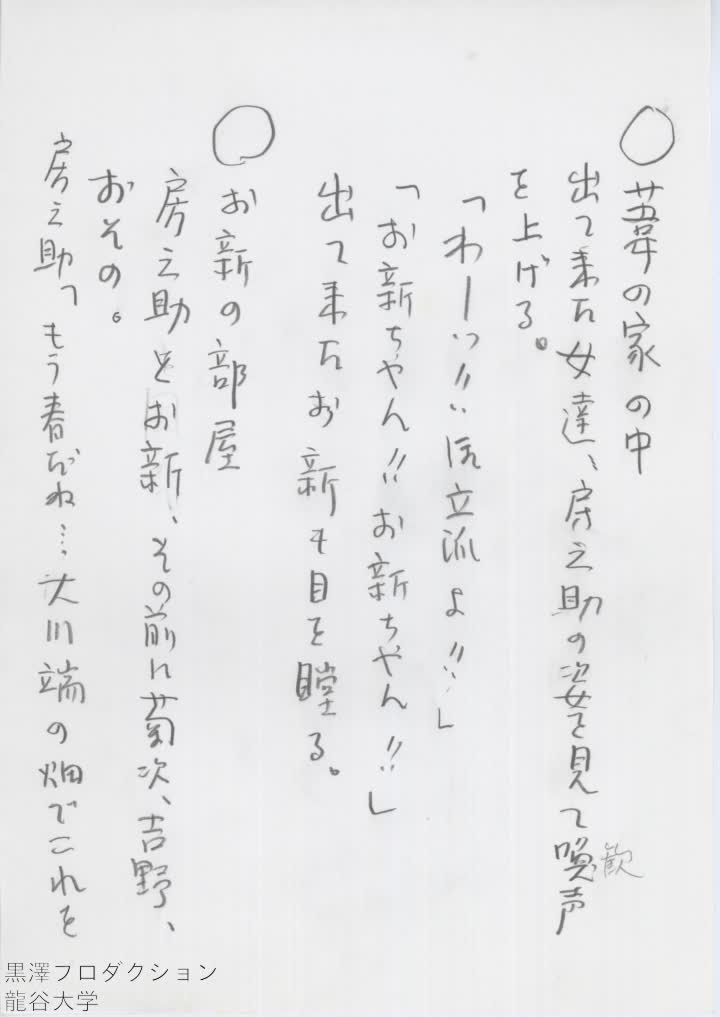 ○葦の家の中
出て来た女達、房之助の姿を見て喚声
歓
を上げる。
「わーっ!!御立派よ!!」
「お新ちゃん!!お新ちゃん!!」
出て来たお新も目を瞠る。
○お新の部屋
房之助とお新、その前に菊次、吉野、
おその。
房之助「もう春だね…大川端の畑でこれを
黒澤プロダクション
龍谷大学